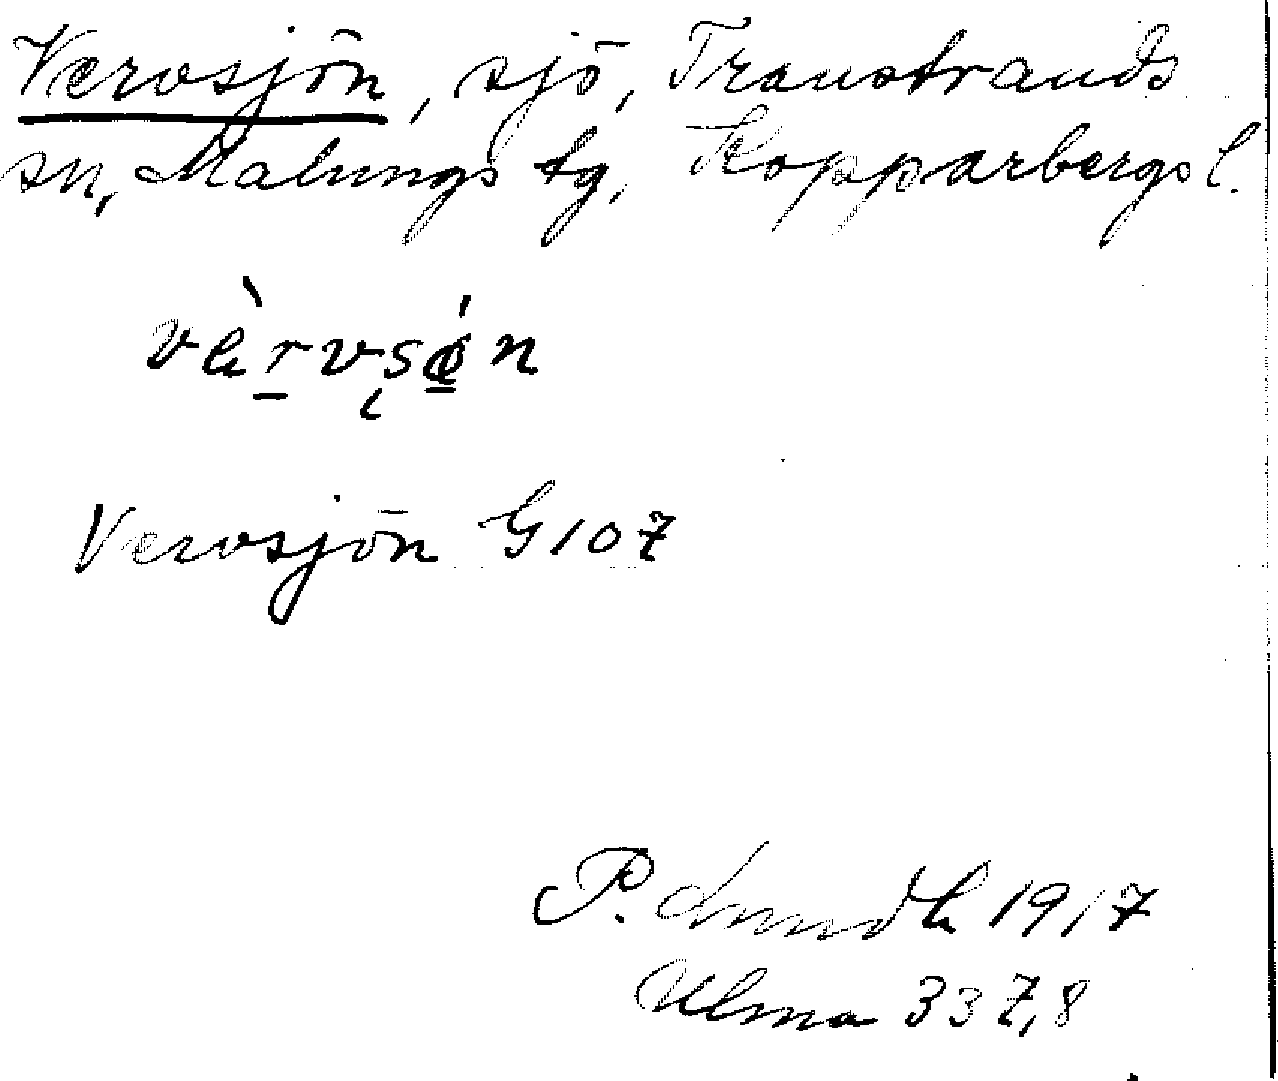 Vervsjön, sjö, Transtrands
sn, Malungs tg, Kopparbergs l.
Vervsjön G107
P. Lundh 1917
Ulma 337,8